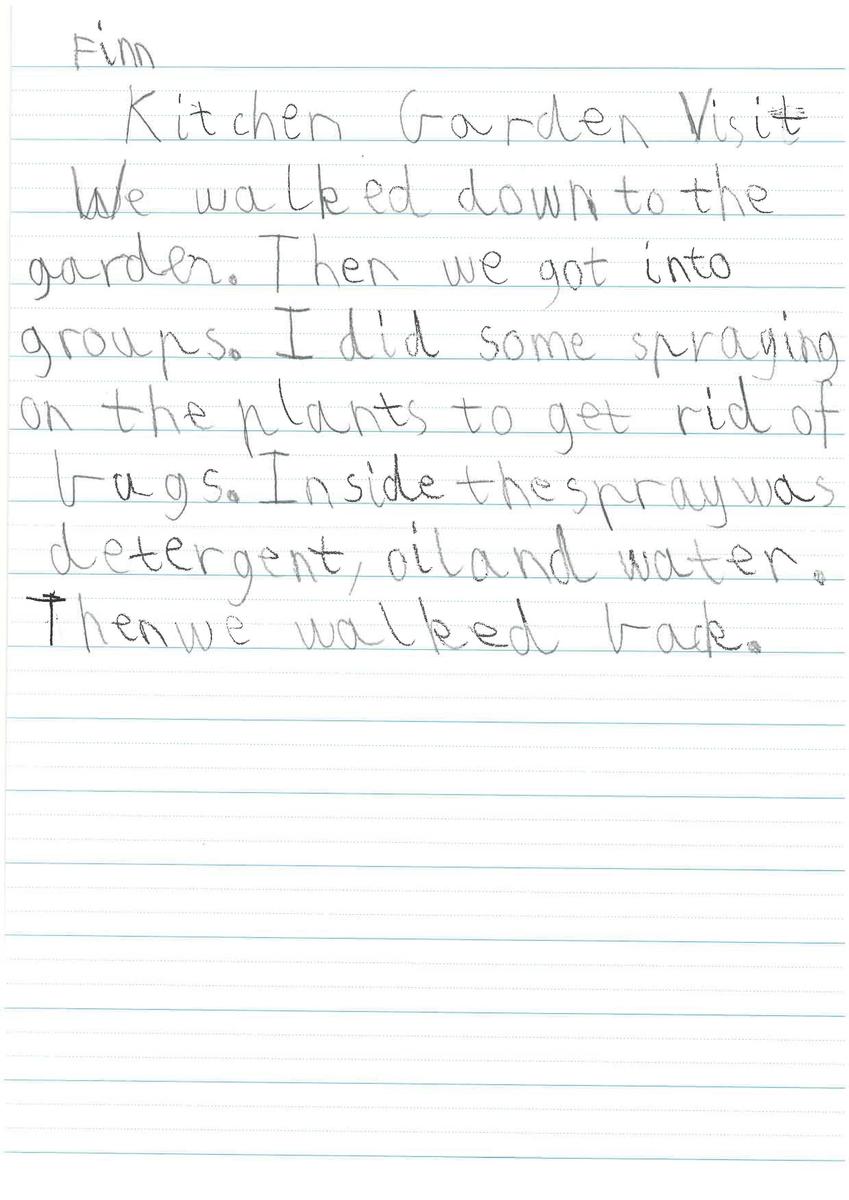 Finn
Kitchen Garden Visit
We walked down to the
garden. Then we got into
groups. I did some spraying
on the plants to get rid of
bugs. Inside the spray was
detergent, oil and water.
Then we walked back.